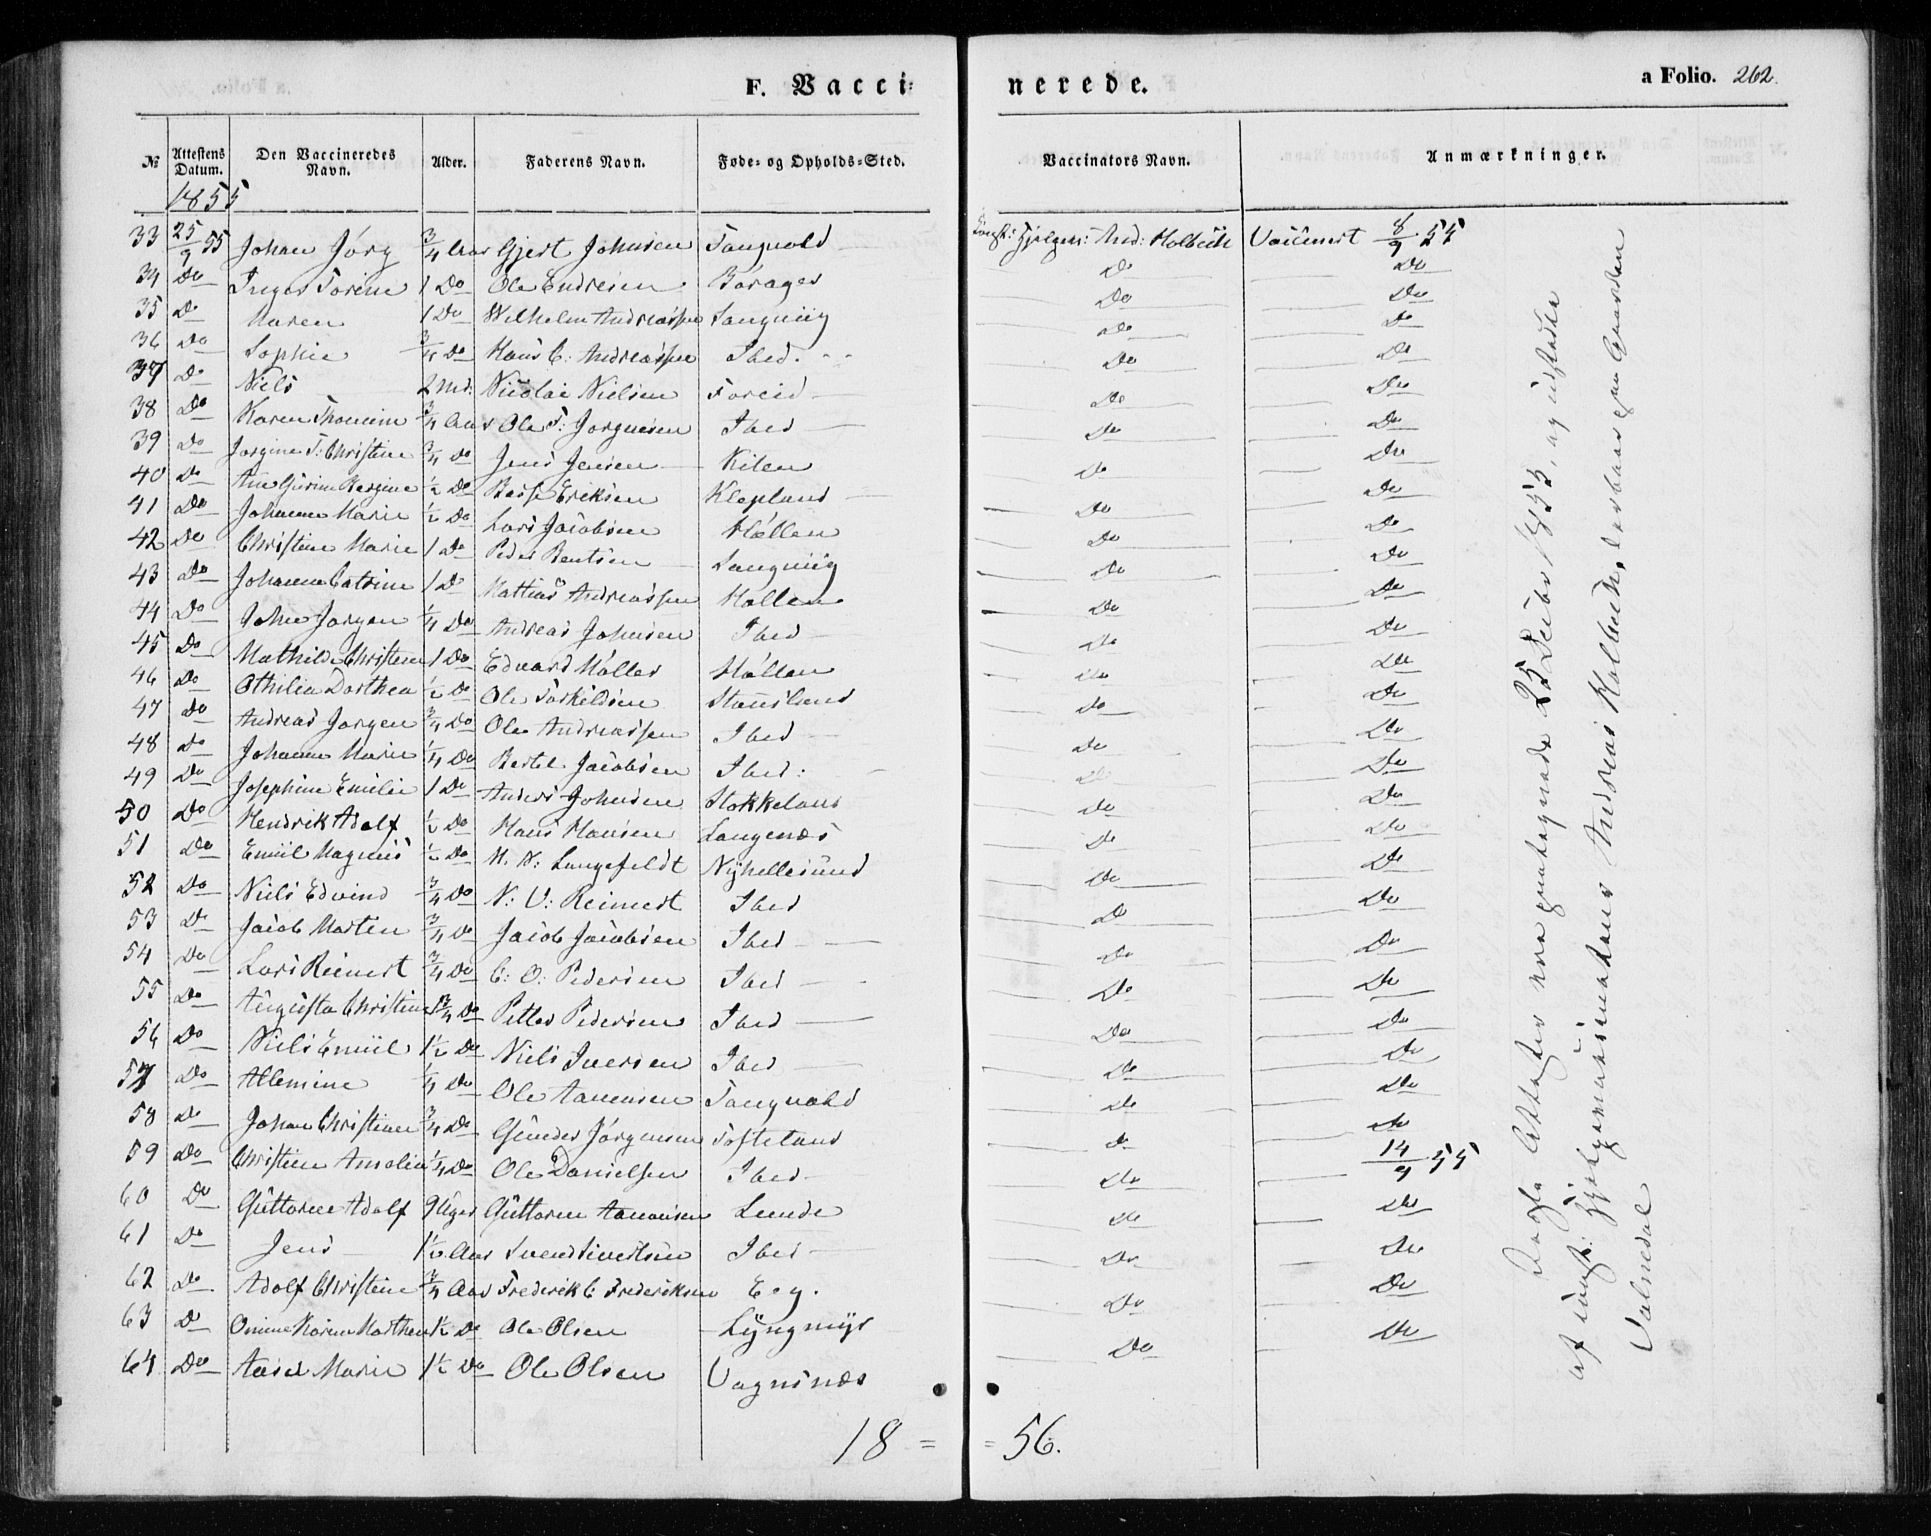 F. Vacci=
nerede.
a Folio. 262.
№ Attestens Datum. Den Vaccineredes Navn. Alder. Faderens Navn. Føde= og Opholds=Sted. Vaccinators Navn. Anmærkninger.
1855
33 25/9 55 Johan Jörg 3/4 Aar Gjert Johnsen Tangvold And: Holbech Vaccineret 8/9 55
34 Do Inger Torine 1 Do Ole Endresen Börager Do Do
35 Do Maren 1 Do Wilhelm Andreassen Langmüg Do Do
36 Do Sophie 3/4 Do Hans C: Andreassen Ibed. Do Do
37 Do Niels 2 Md: Nicolai Nielsen Foreid Do Do
38 Do Karen Thomine 3/4 Aar Ole T: Jörgensen Ibed Do Do
39 Do Jörgine T: Christine 3/4 Do Jens Jensen Kilen Do Do
40 Do Ane Gurine Bergine 1/2 Do Berse Eriksen Klepland Do Do
41 Do Johanne Marie 1/2 Do Lars Jacobsen Höllen Do Do
42 Do Christine Marie 1 Do Peder Bentsen Langmüg Do Do
43 Do Johanne Catrine 1 Do Mathias Andreassen Höllen Do Do
44 Do John Jörgen 1/4 Do Andreas Johnsen Ibed Do Do
45 Do Mathilde Christine 1 Do Edvard Möller Höllen Do Do
46 Do Othilia Dorthea 1/2 Do Ole Torkildsen Stausland Do Do
47 Do Andreas Jörgen 3/4 Do Ole Andreassen Ibed Do Do
48 Do Johanne Marie 1/4 Do Bertel Jacobsen Ibed: Do Do
49 Do Josephine Emilie 1 Do Anders Johnsen Stokkeland Do Do
50 Do Hendrik Adolf 1/2 Do Hans Hansen Langenæs Do Do
51 Do Emiil Magnus 1/2 Do H. N: Langefeldt Nÿhellesund Do Do
52 Do Niels Edvind 3/4 Do N: U: Reinert Ibed Do Do
53 Do Jacob Morten 3/4 Do Jacob Jacobsen Ibed Do Do
54 Do Lars Reinert 3/4 Do C: O: Pedersen Ibed Do Do
55 Do Augusta Christine 1 3/4 Do Petter Pedersen Ibed Do Do
56 Do Niels Emiil 1 1/2 Do Niels Iversen Ibed Do Do
57 Do Allemine 1/4 Do Ole Aanensen Tangvold Do Do
58 Do Johan Christian 3/4 Do Gunder Jörgensen Tofteland Do Do
59 Do Christine Amalia 1/4 Do Ole Danielsen Ibed Do 14/9 55
60 Do Guttorm Adolf 9 Uger Guttorm Aanonsen Lunde Do Do
61 Do Jens 1 1/2 Aar Svend Sivertsen Ibed Do Do
62 Do Adolf Christian 3/4 Aar Frederik C: Frederiksen Eeg. Do Do
63 Do Karen Marthea 1 1/2 Do Ole Olsen Lÿngmÿr Do Do
64 Do Aasel Marie 1 1/2 Do Ole Olsen Vagnsnæs Do
Attester ere modtagne 25 Decbr 1855, og udstedte
af const: Hjelpevaccinateur Andreas Holbech, boende paa Gaarden
Valnedal
18 = = 56.